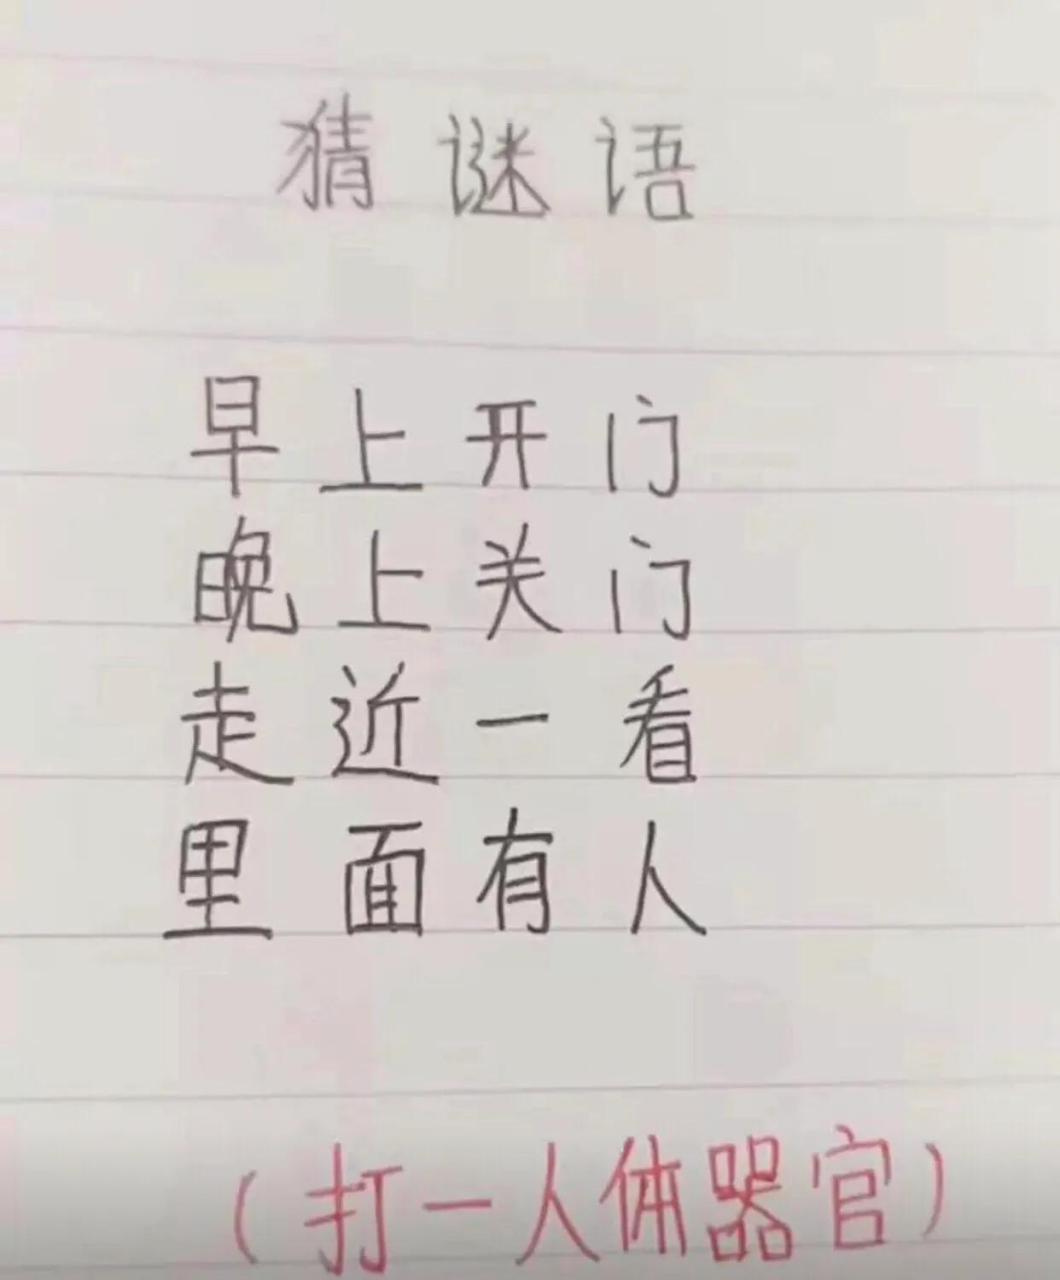 猜谜语
早上开门
晚上关门
走近一看
里面有人
(打一人体器官)